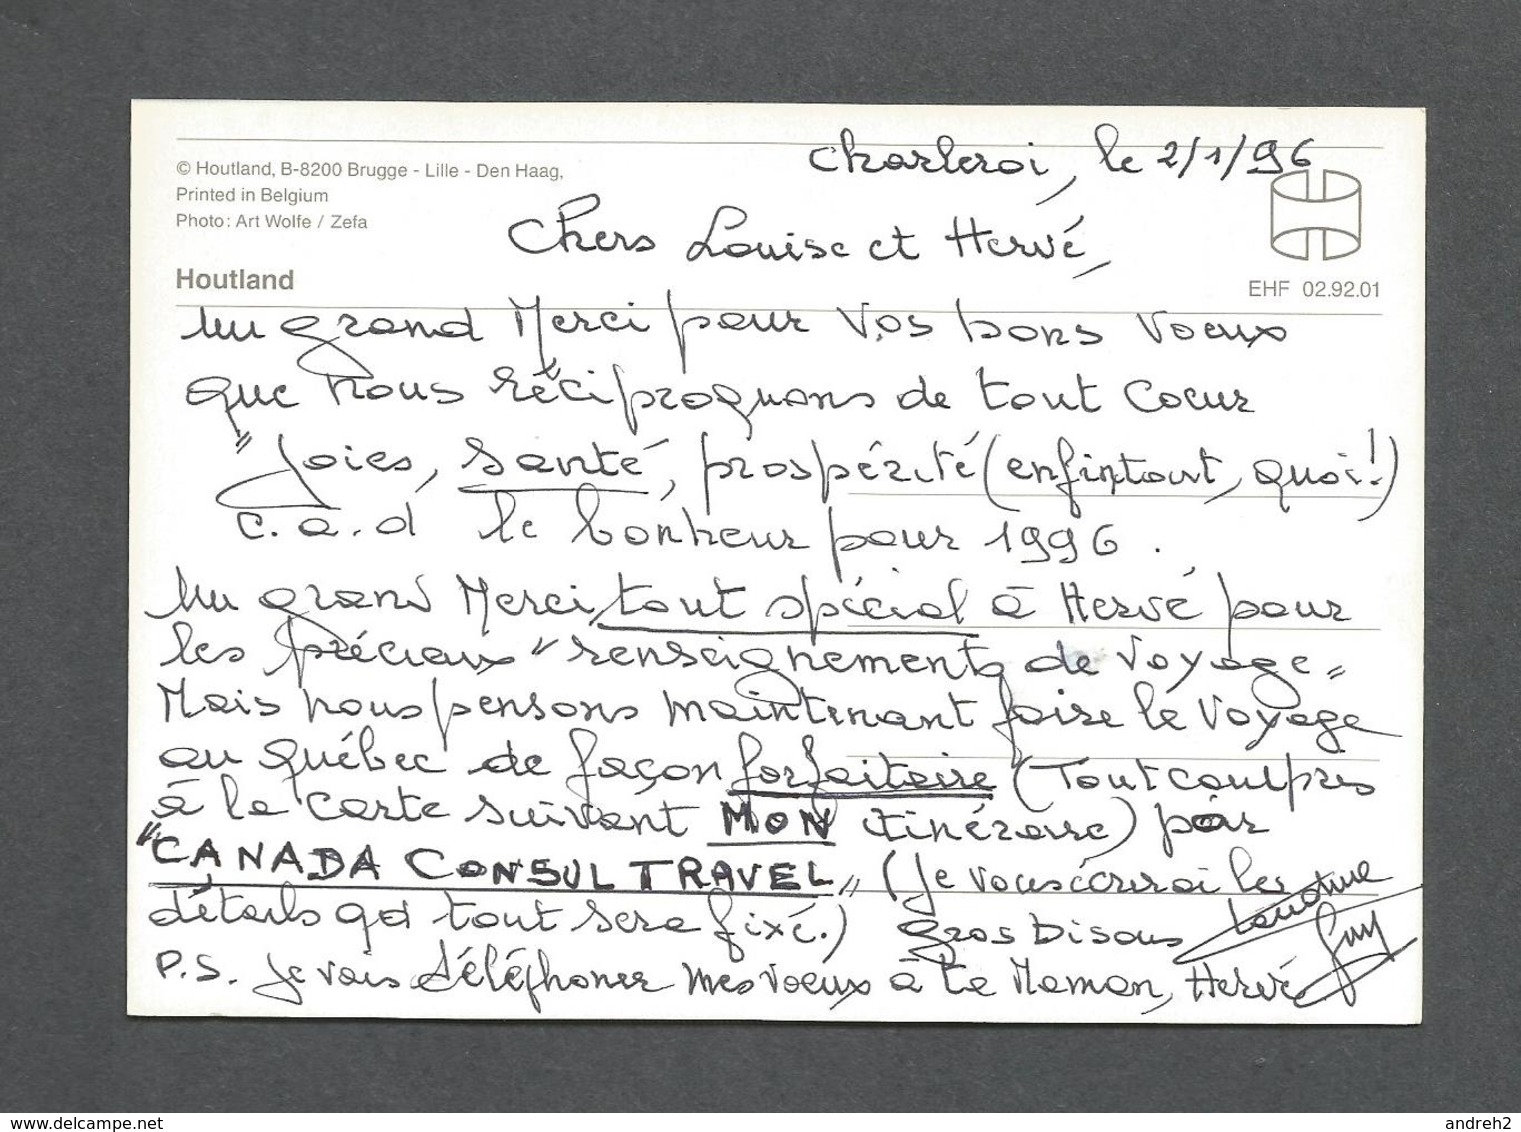 Charleroi, le 2/1/96
© Houtland, B-8200 Brugge - Lille - Den Haag,
Printed in Belgium
Photo: Art Wolfe / Zefa
Houtland
EHF 02.92.01
Chers Louise et Hervé,
Un grand Merci pour vos bons voeux
que nous réciproquons de tout coeur
"Joies, santé, prospérité (enfin tout, quoi!)
c.a.d le bonheur pour 1996.
Un grand Merci tout spécial à Hervé pour
les précieux "renseignements de voyage"
Mais nous pensons maintenant faire le voyage
au Québec de façon forfaitaire (Tout compris
à la carte suivant MON itinéraire) par
"CANADA CONSUL TRAVEL" (Je vous écrirai les
détails qd tout sera fixé.) gros bisous
Guy
P.S. Je vais téléphoner mes voeux à ta Maman, Hervé
andreh2